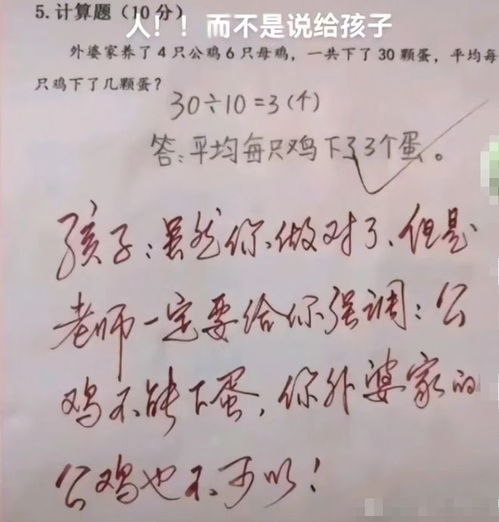 人！！而不是说给孩子
5.计算题（10分）
外婆家养了4只公鸡6只母鸡，一共下了30颗蛋，平均每
只鸡下了几颗蛋？
30÷10=3(个)
答:平均每只鸡下了3个蛋。
孩子:虽然你做对了,但是
老师一定要给你强调:公
鸡不能下蛋,你外婆家的
公鸡也不可以!